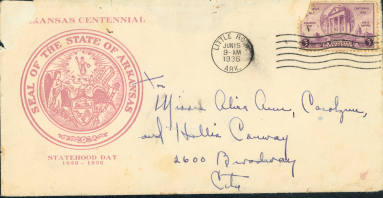 KANSAS CENTENNIAL
SEAL OF THE STATE OF ARKANSAS
STATEHOOD DAY
1836 - 1936
LITTLE ROCK
JUN 15
9-AM
1936
ARK.
3 3
To
Misses Alis Anne, Carolyne,
and Hallie Conway
2600 Broadway
City